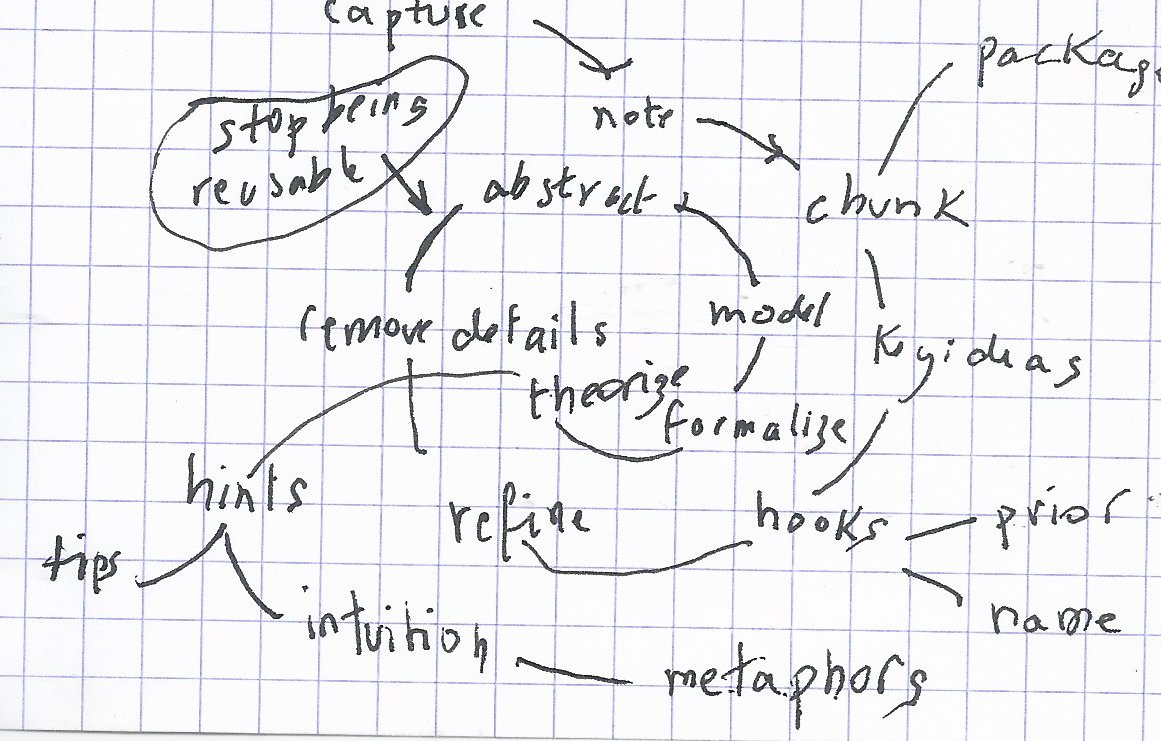 capture
packag
note
stop being
reusable
abstract
chunk
remove details
model
Kyideas
theorize
formalize
hints
refine
hooks
prior
tips
name
intuition
metaphors